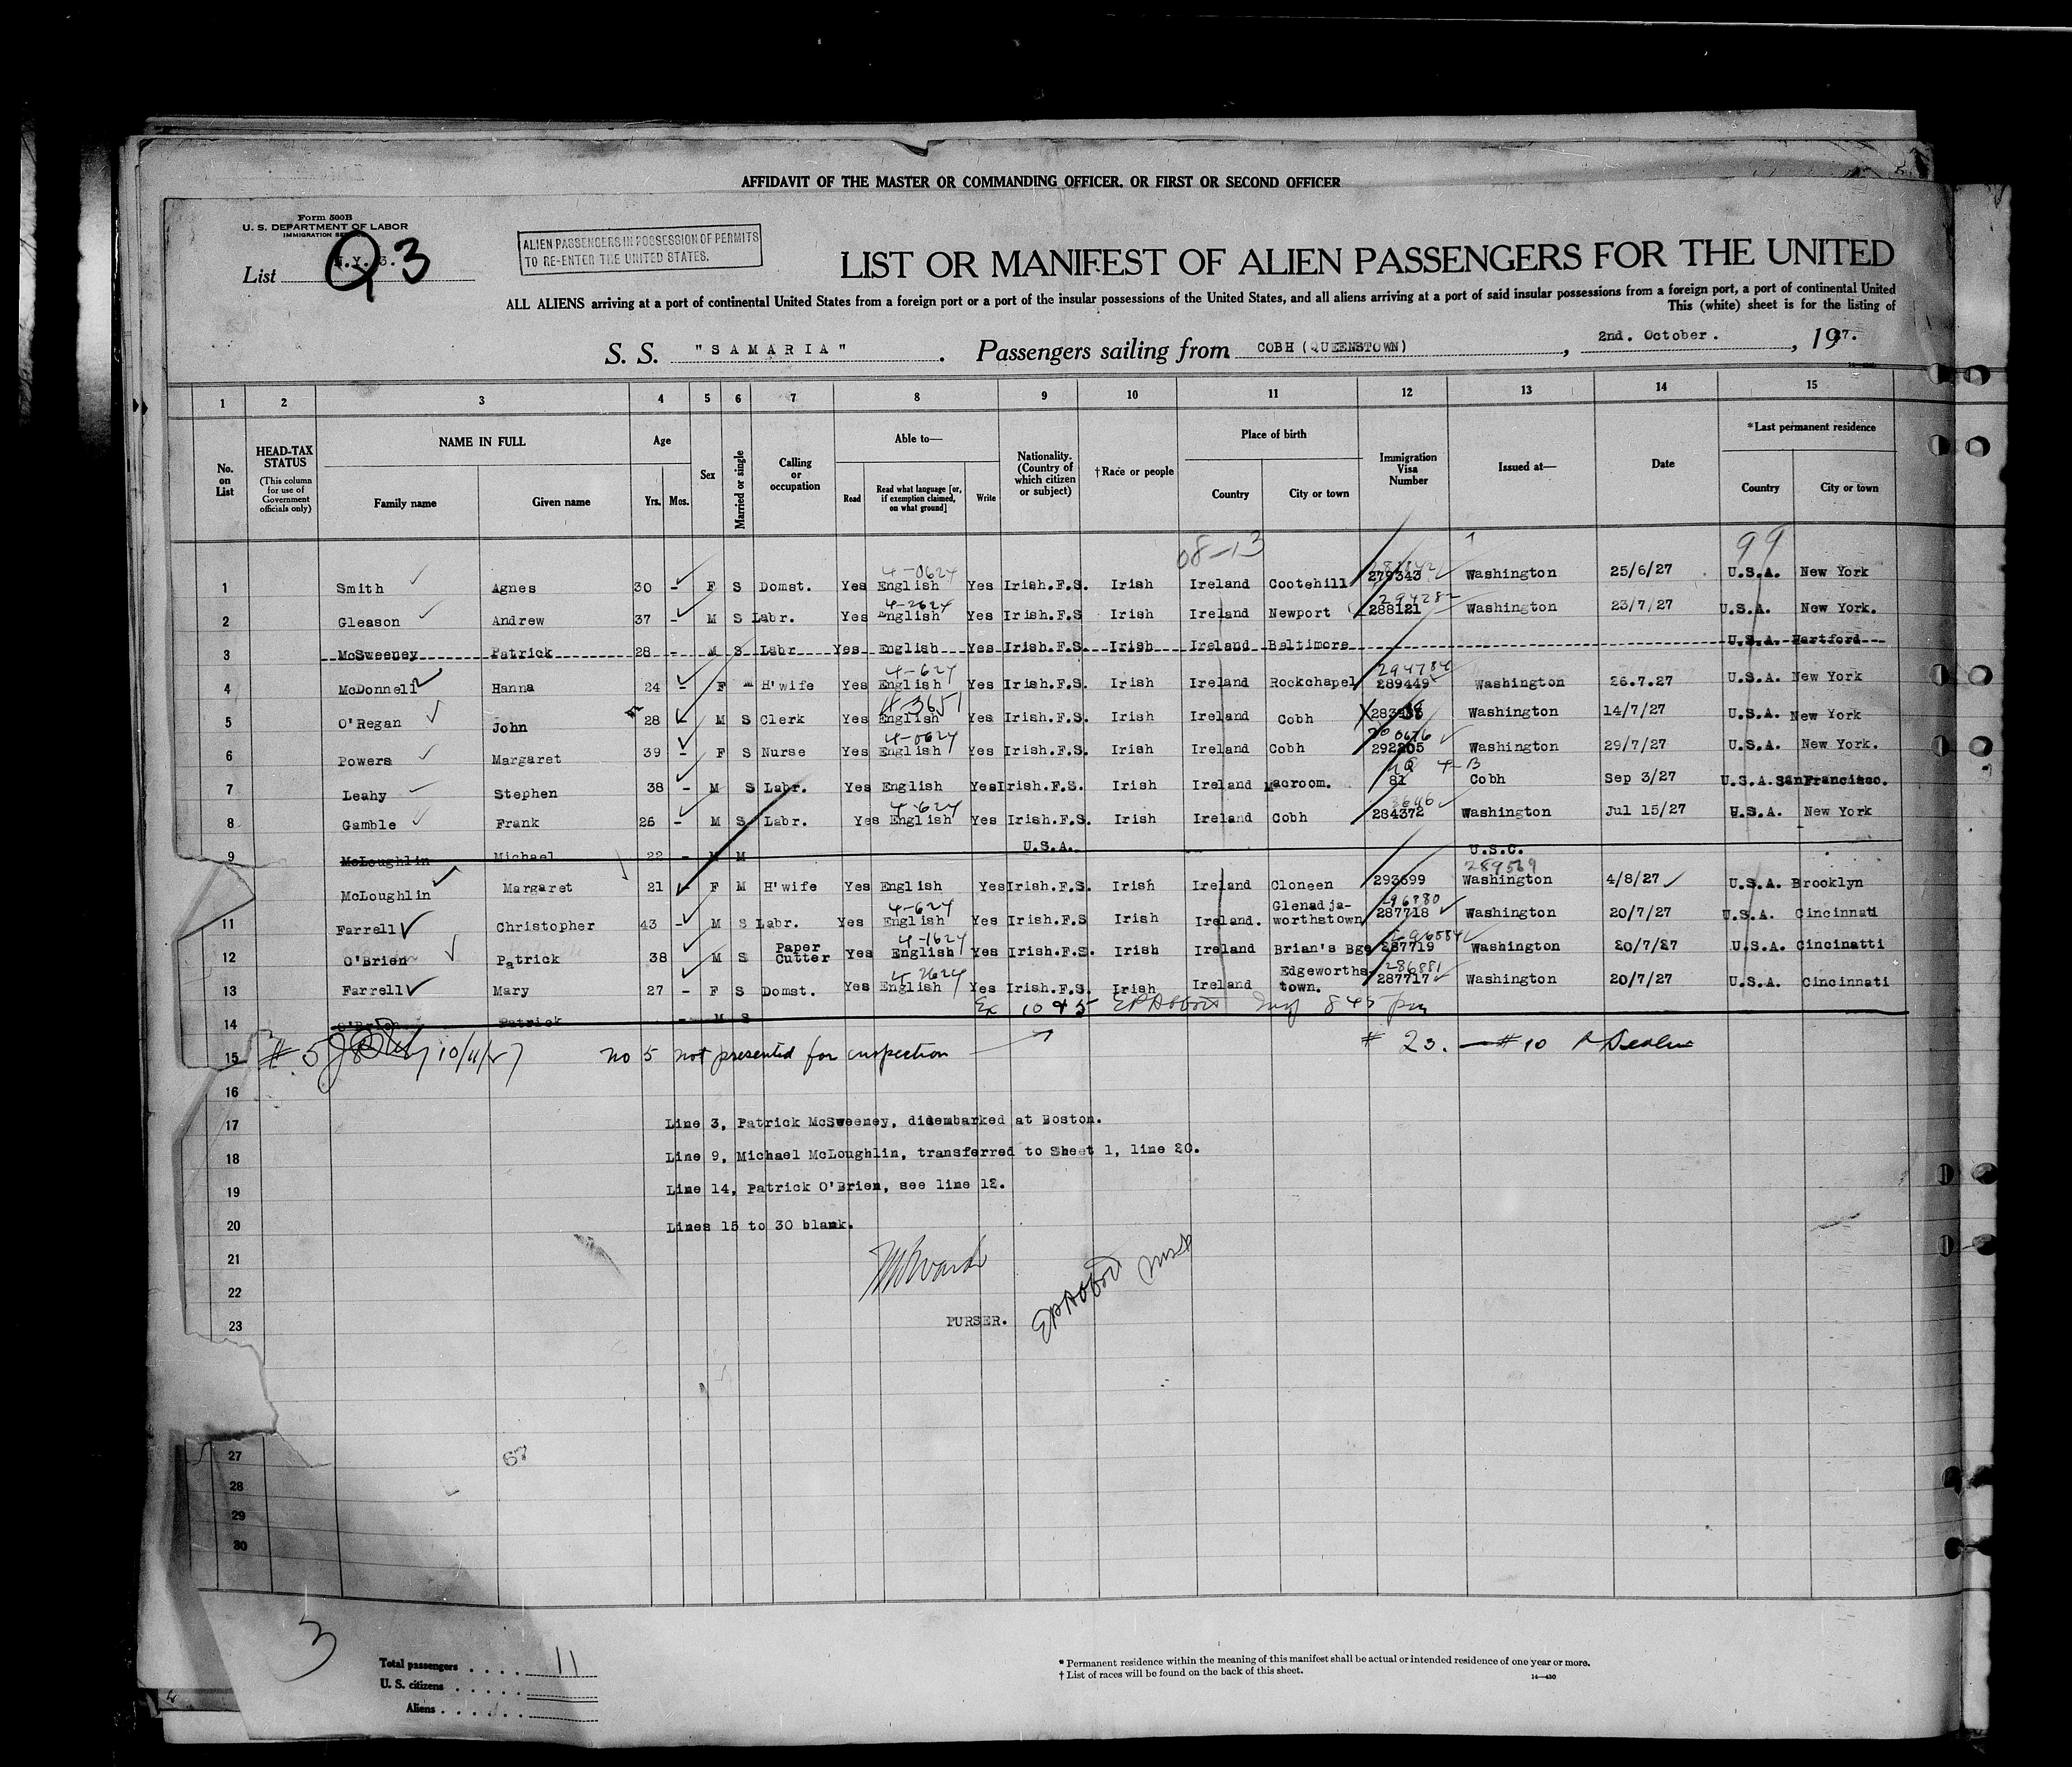 AFFIDAVIT OF THE MASTER OR COMMANDING OFFICER, OR FIRST OR SECOND OFFICER
Form 500B
U. S. DEPARTMENT OF LABOR
IMMIGRATION
List N.Y. 3. Q3
ALIEN PASSENGERS IN POSSESSION OF PERMITS
TO RE-ENTER THE UNITED STATES.
LIST OR MANIFEST OF ALIEN PASSENGERS FOR THE UNITED
ALL ALIENS arriving at a port of continental United States from a foreign port or a port of the insular possessions of the United States, and all aliens arriving at a port of said insular possessions from a foreign port, a port of continental United
This (white) sheet is for the listing of
S. S. "SAMARIA". Passengers sailing from COBH (QUEENSTOWN), 2nd. October., 1927.
1 2 3 4 5 6 7 8 9 10 11 12 13 14 15
No. on List
HEAD-TAX STATUS (This column for use of Government officials only)
NAME IN FULL
Family name Given name
Age Yrs. Mos.
Sex
Married or single
Calling or occupation
Able to—
Read
Read what language [or, if exemption claimed, on what ground]
Write
Nationality. (Country of which citizen or subject)
†Race or people
Place of birth
Country City or town
Immigration Visa Number
Issued at—
Date
*Last permanent residence
Country City or town
08-13 99
4-0624
1 Smith Agnes 30 - F S Domst. Yes English Yes Irish.F.S. Irish Ireland Cootehill 279343 Washington 25/6/27 U.S.A. New York
4-2624 294282
2 Gleason Andrew 37 - M S Labr. Yes English Yes Irish.F.S Irish Ireland Newport 288121 Washington 23/7/27 U.S.A. New York.
3 McSweeney Patrick 28 - M S Labr Yes English Yes Irish.F.S. Irish Ireland Baltimore U.S.A. Hartford
4-624 294784
4 McDonnell Hanna 24 - F H'wife Yes English Yes Irish.F.S. Irish Ireland Rockchapel 289449 Washington 26.7.27 U.S.A. New York
4-3651
5 O'Regan John 28 M S Clerk Yes English Yes Irish.F.S. Irish Ireland Cobh Washington 14/7/27 U.S.A. New York
4-0624
6 Powers Margaret 39 - F S Nurse Yes English Yes Irish.F.S. Irish Ireland Cobh 292205 Washington 29/7/27 U.S.A. New York.
NQ 4-B
7 Leahy Stephen 38 - M S Labr. Yes English Yes Irish.F.S. Irish Ireland Macroom. 81 Cobh Sep 3/27 U.S.A. San Francisco.
4-624
8 Gamble Frank 26 - M S Labr. Yes English Yes Irish.F.S. Irish Ireland Cobh 284372 Washington Jul 15/27 U.S.A. New York
9 McLoughlin Michael 22 - M M U.S.A. U.S.C.
289569
McLoughlin Margaret 21 - F M H'wife Yes English Yes Irish.F.S. Irish Ireland Cloneen 293699 Washington 4/8/27 U.S.A. Brooklyn
4-624 296880
11 Farrell Christopher 43 - M S Labr. Yes English Yes Irish.F.S Irish Ireland. Glenadja-worthstown 287718 Washington 20/7/27 U.S.A. Cincinnati
4-1624
12 O'Brien Patrick 38 M S Paper Cutter Yes English Yes Irish.F.S. Irish Ireland Brian's Bge 287719 Washington 20/7/27 U.S.A. Cincinatti
4-2624 286881
13 Farrell Mary 27 - F S Domst. Yes English Yes Irish.F.S. Irish Ireland Edgeworths-town. 287717 Washington 20/7/27 U.S.A. Cincinnati
Ex 1045 EPAbbott Insp 845 pm
14 O'Brien Patrick - M S
15 # 5 10/11/27 no 5 not presented for inspection # 23. — #10
16
17 Line 3, Patrick McSweeney, didembarked at Boston.
18 Line 9, Michael McLoughlin, transferred to Sheet 1, line 20.
19 Line 14, Patrick O'Brien, see line 12.
20 Lines 15 to 30 blank.
21
22
EPAbbott Insp
23 PURSER.
27
67
28
29
30
3
Total passengers . . . . 11
U. S. citizens . . . . .
Aliens . . . . . .
* Permanent residence within the meaning of this manifest shall be actual or intended residence of one year or more.
† List of races will be found on the back of this sheet.
14—430